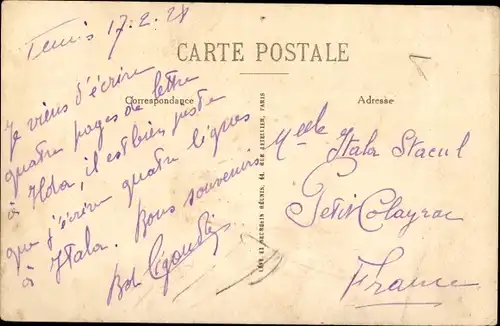 Tunis 17.2.28
CARTE POSTALE
Correspondance
Adresse
Je viens d'écrire
quatre pages de lettre
à Hda, il est bien juste
que j'écrive quatre lignes
à Itala. Bons souvenirs
LEVY ET NEURDEIN RÉUNIS, 44, RUE LETELLIER, PARIS
Melle Itala Stacul
Petit Colayrac
France